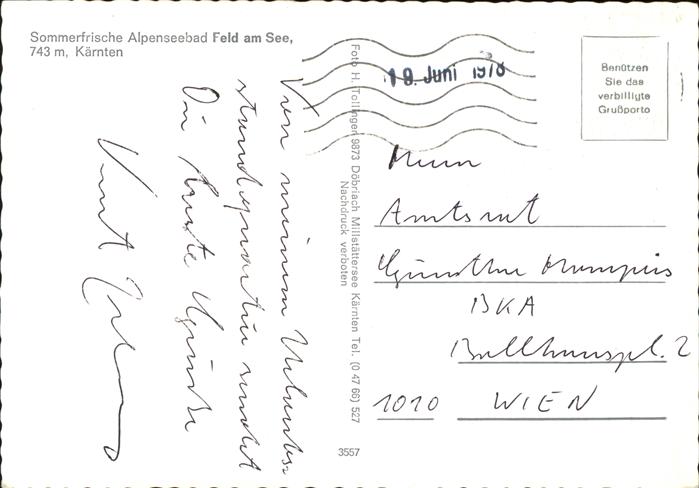 Sommerfrische Alpenseebad Feld am See,
743 m, Kärnten
Von meinem Urlaubs-
standquartier sendet
Dir beste Grüsse
Foto H. Tollinger 9873 Döbriach Millstättersee Kärnten Tel. (0 47 66) 527
Nachdruck verboten
3557
Juni 1978
Benützen
Sie das
verbilligte
Grußporto
Herrn
Amtsrat
Günther
BKA
Ballhauspl. 2
1010 WIEN